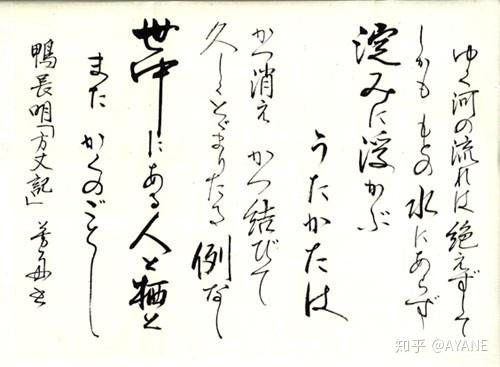 ゆく河の流れは絶えずして
しかももとの水にあらず
淀みに浮かぶ
うたかたは
かつ消えかつ結びて
久しくとゞまりたる例なし
世中にある人と栖と
またかくのごとし
鴨長明「方丈記」
知乎 @AYANE